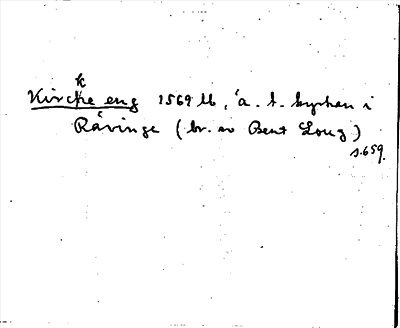 k
Kirche eng 1569 Lb, 'a. t. kyrkan i
Råvinge (br. av Bent Long)
s. 659.